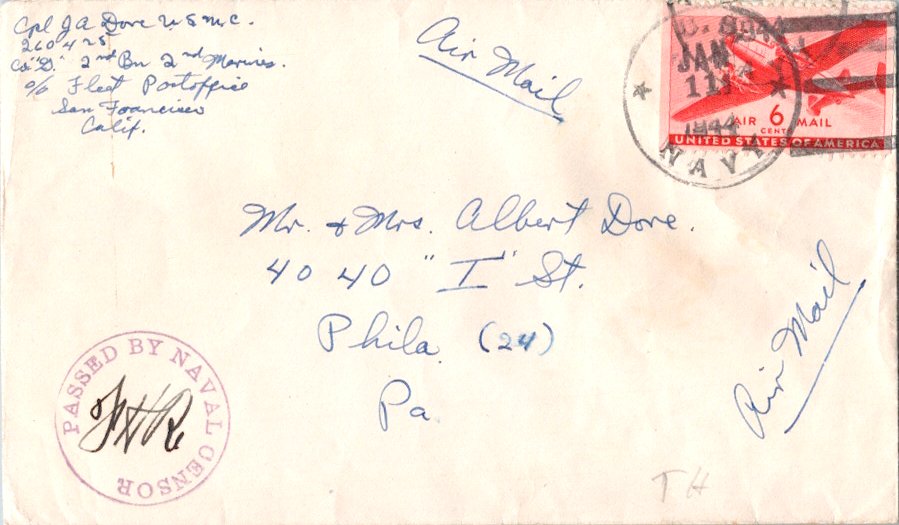 Cpl J A Dove U S M C.
260425
Co "D" 2nd Bn 2nd Marines.
c/o Fleet Postoffice
San Francisco
Calif.
Air Mail
U. S.
JAN
11
1944
NAVY
AIR 6 MAIL
CENTS
UNITED STATES OF AMERICA
Mr. & Mrs. Albert Dove.
40 40 "I" St.
Phila. (24)
Pa.
Air Mail
PASSED BY NAVAL CENSOR
TH